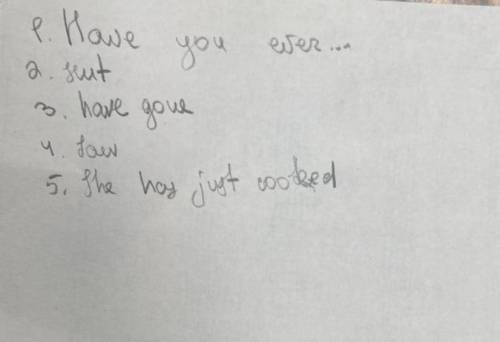 1. Have you ever...
2. sent
3. have gone
4. saw
5. She has just cooked